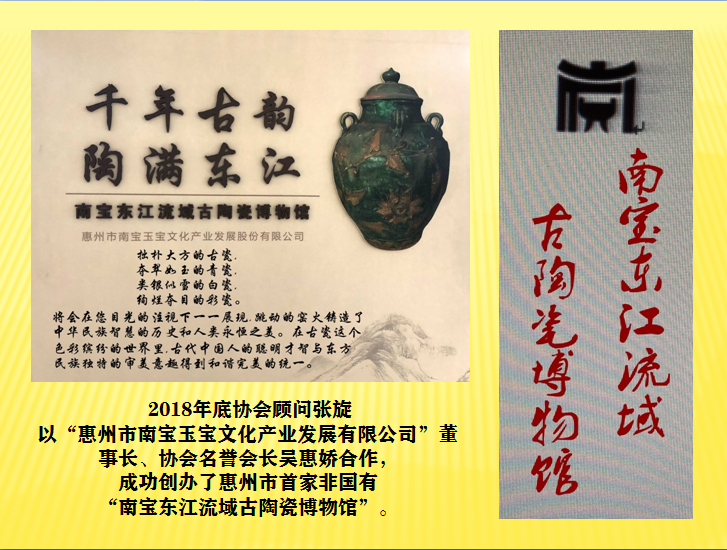 千年古韵
陶满东江
南宝东江流域古陶瓷博物馆
惠州市南宝玉宝文化产业发展股份有限公司
拙朴大方的古瓷,
夺翠如玉的青瓷,
类银似雪的白瓷,
绚烂夺目的彩瓷。
将会在您目光的注视下一一展现,跳动的窑火铸造了
中华民族智慧的历史和人类永恒之美。在古瓷这个
色彩缤纷的世界里,古代中国人的聪明才智与东方
民族独特的审美意趣得到和谐完美的统一。
南宝东江流域
古陶瓷博物馆
2018年底协会顾问张旋
以“惠州市南宝玉宝文化产业发展有限公司”董
事长、协会名誉会长吴惠娇合作,
成功创办了惠州市首家非国有
“南宝东江流域古陶瓷博物馆”。